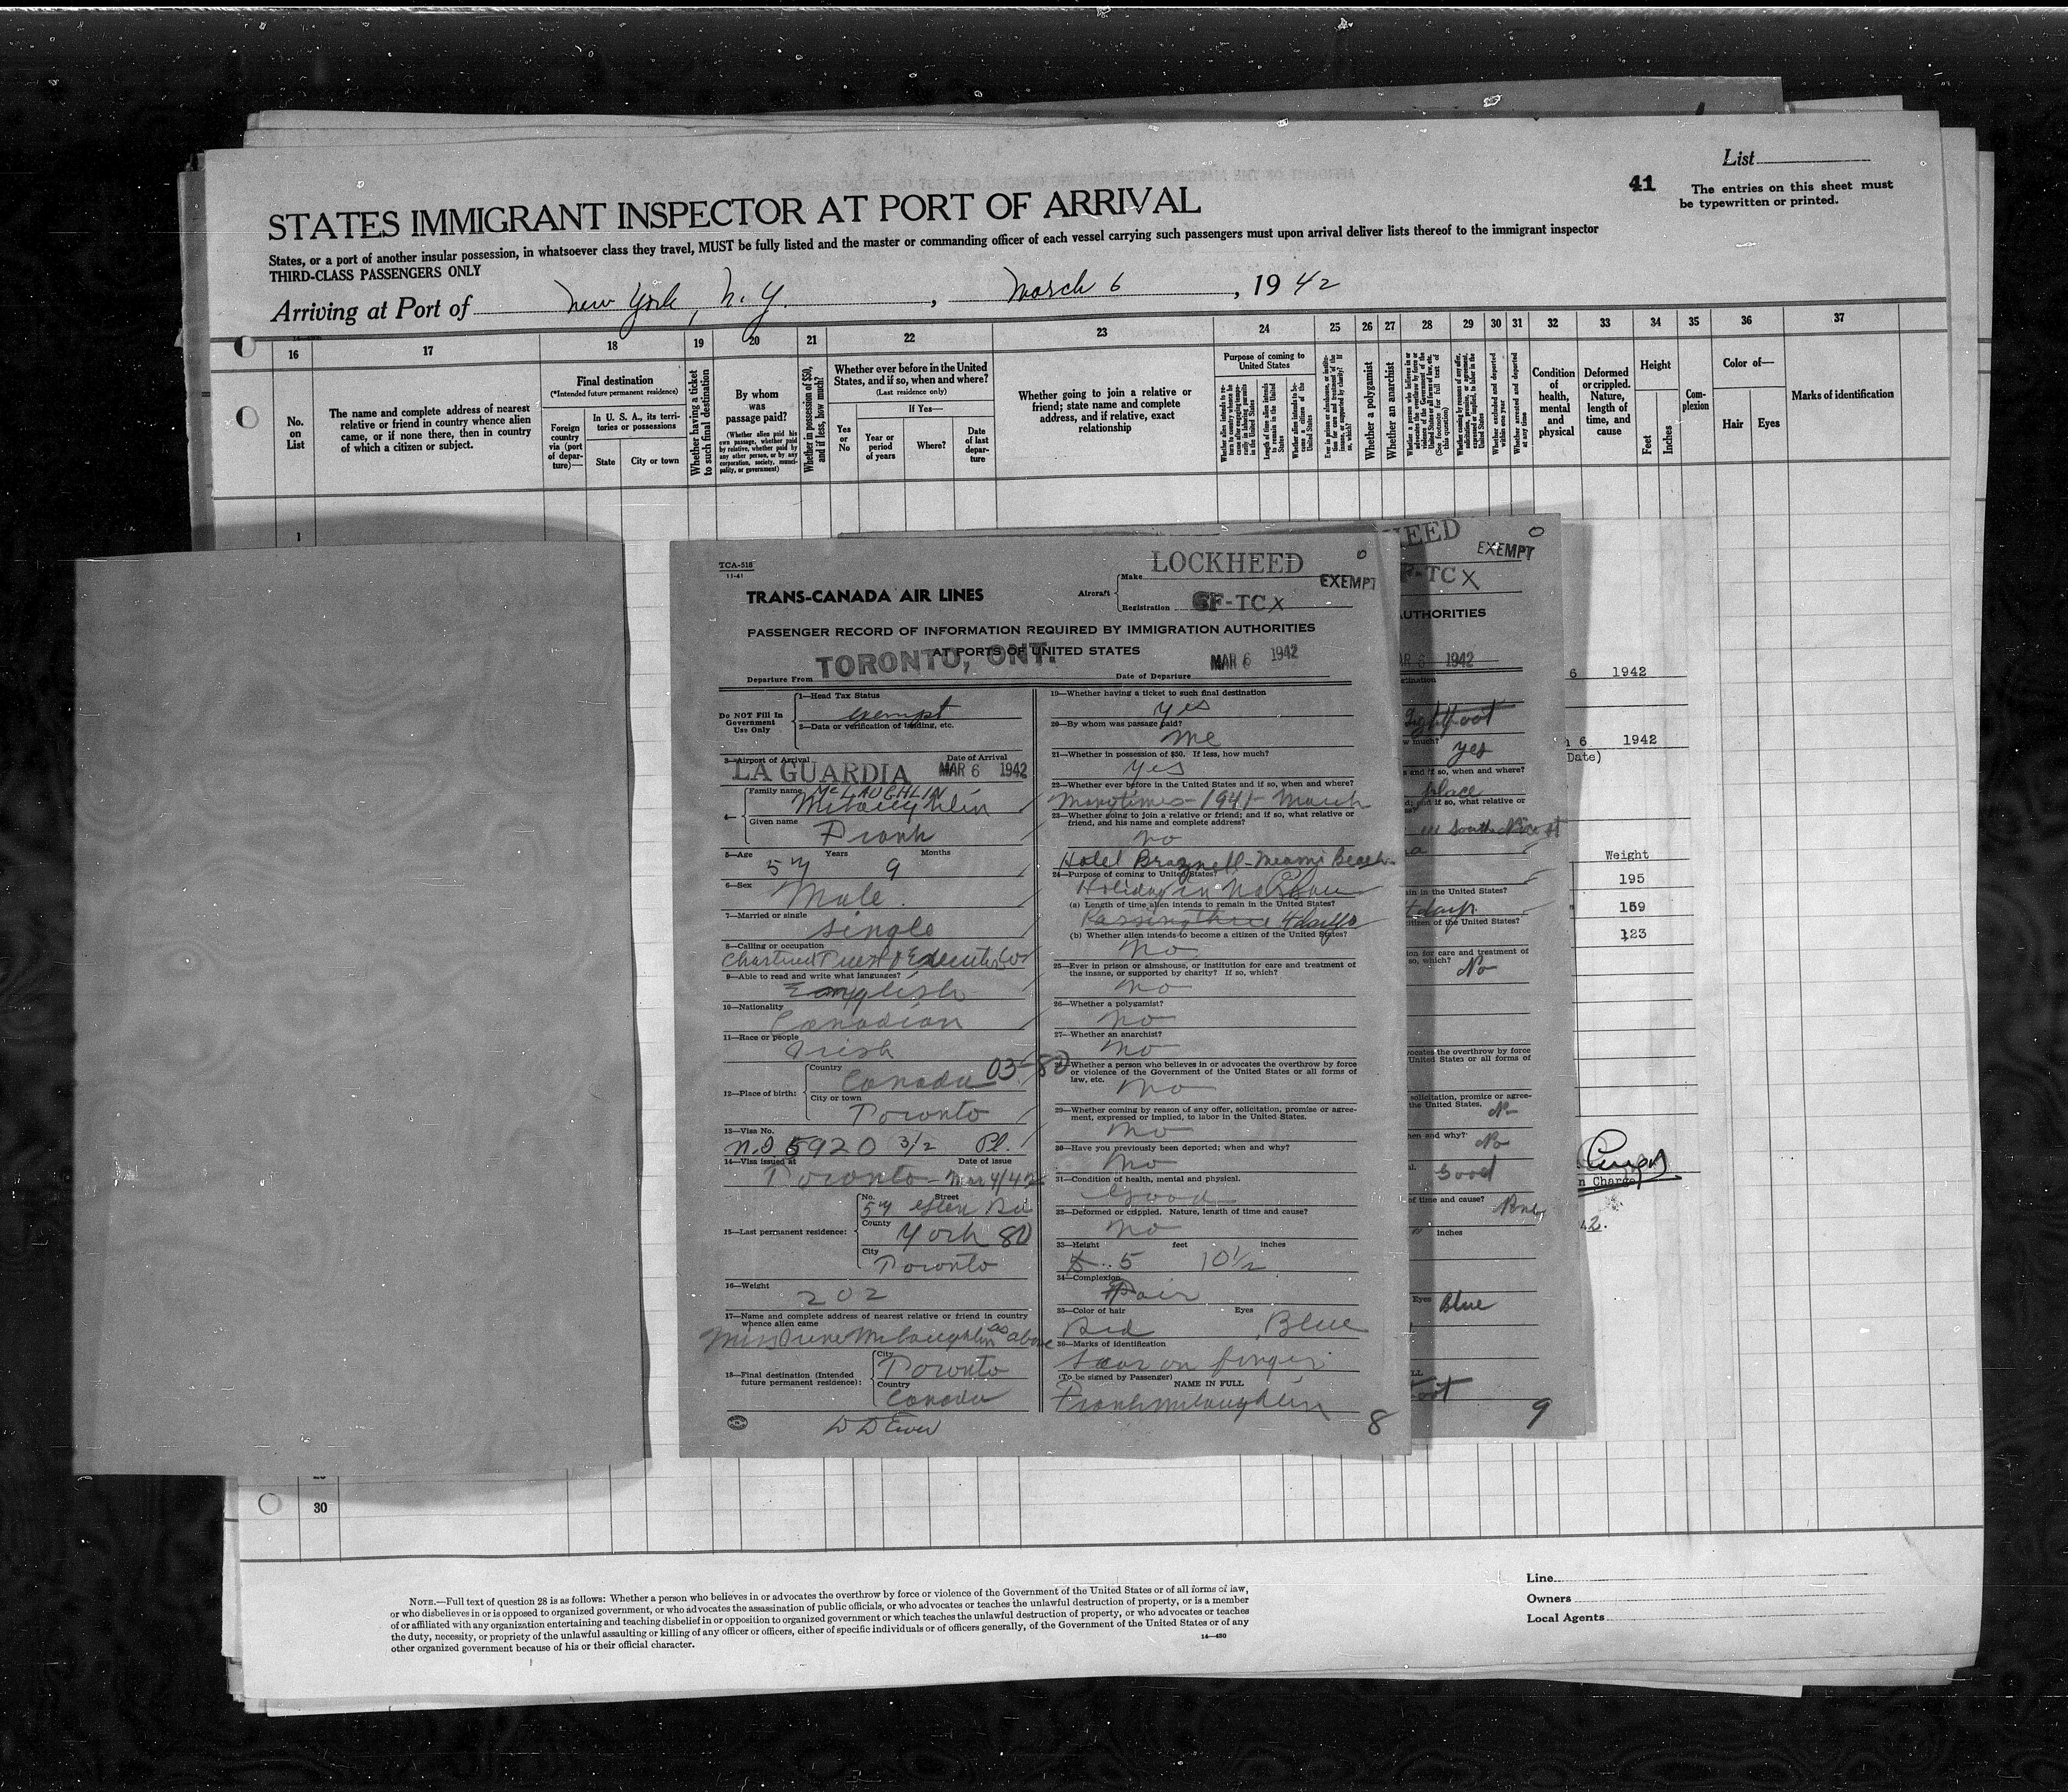 List
41
The entries on this sheet must
be typewritten or printed.
STATES IMMIGRANT INSPECTOR AT PORT OF ARRIVAL
States, or a port of another insular possession, in whatsoever class they travel, MUST be fully listed and the master or commanding officer of each vessel carrying such passengers must upon arrival deliver lists thereof to the immigrant inspector
THIRD-CLASS PASSENGERS ONLY
Arriving at Port of New York, N.Y., March 6, 1942
16 17 18 19 20 21 22 23 24 25 26 27 28 29 30 31 32 33 34 35 36 37
No.
on
List
The name and complete address of nearest
relative or friend in country whence alien
came, or if none there, then in country
of which a citizen or subject.
Final destination
(*Intended future permanent residence)
Foreign
country
via (port
of depar-
ture)—
In U. S. A., its terri-
tories or possessions
State
City or town
Whether having a ticket
to such final destination
By whom
was
passage paid?
(Whether alien paid his
own passage, whether paid
by relative, whether paid by
any other person, or by any
corporation, society, munici-
pality, or government)
Whether in possession of $50,
and if less, how much?
Whether ever before in the United
States, and if so, when and where?
(Last residence only)
Yes
or
No
If Yes—
Year or
period
of years
Where?
Date
of last
depar-
ture
Whether going to join a relative or
friend; state name and complete
address, and if relative, exact
relationship
Purpose of coming to
United States
Whether a polygamist
Whether an anarchist
Condition
of
health,
mental
and
physical
Deformed
or crippled.
Nature,
length of
time, and
cause
Height
Feet
Inches
Com-
plexion
Color of—
Hair
Eyes
Marks of identification
1
TCA-518
11-41
TRANS-CANADA AIR LINES
Aircraft
Make LOCKHEED
EXEMPT
Registration CF-TCX
PASSENGER RECORD OF INFORMATION REQUIRED BY IMMIGRATION AUTHORITIES
AT PORTS OF UNITED STATES
Departure From TORONTO, ONT.
Date of Departure MAR 6 1942
Do NOT Fill In
Government
Use Only
1—Head Tax Status
exempt
2—Data or verification of landing, etc.
3—Airport of Arrival LA GUARDIA
Date of Arrival MAR 6 1942
4— Family name McLAUGHLIN
McLaughlin
Given name Frank
5—Age 57 Years 9 Months
6—Sex Male.
7—Married or single
single
8—Calling or occupation
9—Able to read and write what languages?
English
10—Nationality
Canadian
11—Race or people
Irish
12—Place of birth: Country Canada 03-80
City or town Toronto
13—Visa No.
5920 3/2
14—Visa issued at Toronto Date of issue Mar 4/42
15—Last permanent residence: No. 57 Street Glen Rd
County York 80
City Toronto
16—Weight
202
17—Name and complete address of nearest relative or friend in country
whence alien came
Miss June McLaughlin as above
18—Final destination (Intended
future permanent residence):
City Toronto
Country Canada
19—Whether having a ticket to such final destination
yes
20—By whom was passage paid?
me
21—Whether in possession of $50. If less, how much?
yes
22—Whether ever before in the United States and if so, when and where?
Manytimes - 1941 - March
23—Whether going to join a relative or friend; and if so, what relative or
friend, and his name and complete address?
no
24—Purpose of coming to United States?
Holiday in
(a) Length of time alien intends to remain in the United States?
(b) Whether alien intends to become a citizen of the United States?
no
25—Ever in prison or almshouse, or institution for care and treatment of
the insane, or supported by charity? If so, which?
no
26—Whether a polygamist?
no
27—Whether an anarchist?
no
28—Whether a person who believes in or advocates the overthrow by force
or violence of the Government of the United States or all forms of
law, etc.
no
29—Whether coming by reason of any offer, solicitation, promise or agree-
ment, expressed or implied, to labor in the United States.
no
30—Have you previously been deported; when and why?
no
31—Condition of health, mental and physical.
Good
32—Deformed or crippled. Nature, length of time and cause?
no
33—Height 5 feet 10 1/2 inches
34—Complexion
Fair
35—Color of hair Red Eyes Blue
36—Marks of identification
Scar on finger
(To be signed by Passenger) NAME IN FULL
Frank McLaughlin
8
EXEMPT
AUTHORITIES
1942
yes
No
No
No
Good
inches
Eyes Blue
9
6 1942
6 1942
Date)
Weight
195
159
123
n Charge
30
NOTE.—Full text of question 28 is as follows: Whether a person who believes in or advocates the overthrow by force or violence of the Government of the United States or of all forms of law,
or who disbelieves in or is opposed to organized government, or who advocates the assassination of public officials, or who advocates or teaches the unlawful destruction of property, or is a member
of or affiliated with any organization entertaining and teaching disbelief in or opposition to organized government or which teaches the unlawful destruction of property, or who advocates or teaches
the duty, necessity, or propriety of the unlawful assaulting or killing of any officer or officers, either of specific individuals or of officers generally, of the Government of the United States or of any
other organized government because of his or their official character.
14—430
Line
Owners
Local Agents